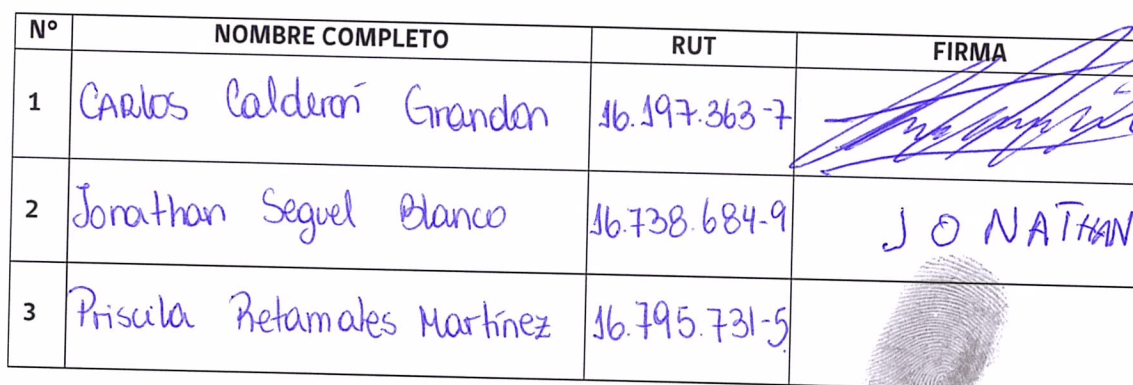 N° NOMBRE COMPLETO RUT FIRMA
1 CARLOS Calderón Grandon 16.197.363-7
2 Jonathan Seguel Blanco 16.738.684-9 JONATHAN
3 Priscila Retamales Martínez 16.795.731-5